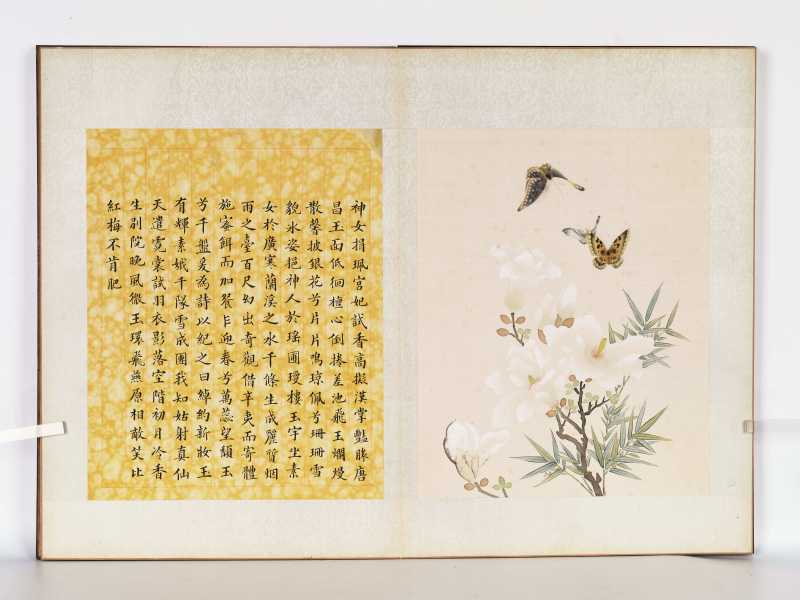 神女捐珮宮妃試香高擬漢掌豔勝唐
昌玉面低徊檀心倒捲差池飛玉爛熳
散馨披銀花兮片片鳴琼佩兮珊珊雪
貌氷姿挹神人於瑤圃瓊樓玉宇坐素
女於廣寒蘭溪之水千條生成麗質烟
雨之臺百尺幻出奇觀借辛夷而寄體
施蜜餌而加餐乍迎春兮萬蕊望頳玉
兮千盤爰為詩以紀之曰綽約新妝玉
有輝素娥千隊雪成團我知姑射真仙
天遣霓裳試羽衣影落空階初月冷香
生別院晚風微玉環飛燕原相敵笑比
紅梅不肯肥